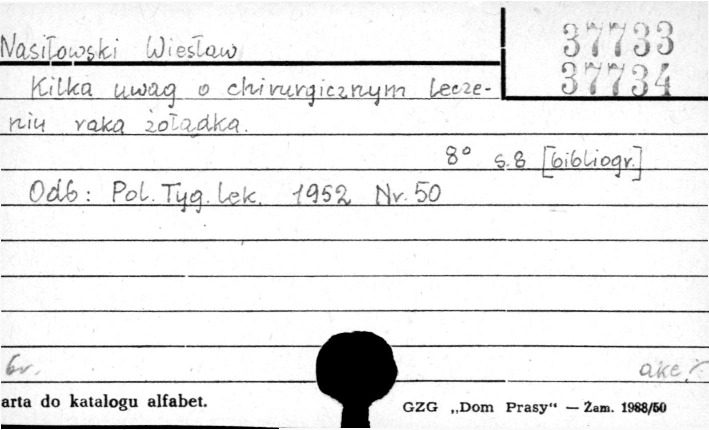 Nasiłowski Wiesław
37733
37734
Kilka uwag o chirurgicznym lecze-
niu raka żołądka.
8° s.8 [bibliogr.]
Odb: Pol. Tyg. lek. 1952 Nr. 50
br.
arta do katalogu alfabet.
GZG „Dom Prasy“ — Zam. 1988/50